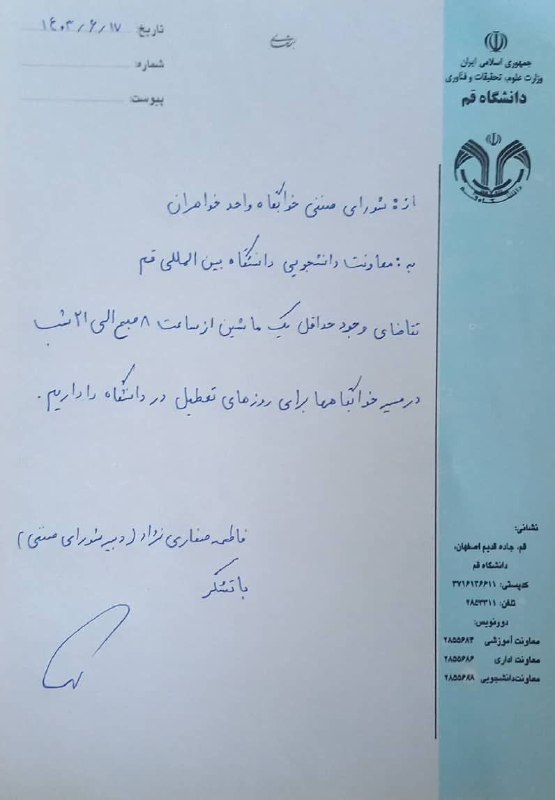 جمهوری اسلامی ایران
وزارت علوم، تحقیقات و فناوری
دانشگاه قم
تاریخ: ۱۴۰۳/۶/۱۷
شماره:
پیوست:
از: شورای صنفی خوابگاه واحد خواهران
به: معاونت دانشجویی دانشگاه بین المللی قم
تقاضای وجود حداقل یک ماشین از ساعت ۸ صبح الی ۲۱ شب
در مسیر خوابگاهها برای روزهای تعطیل در دانشگاه را داریم.
فاطمه صفاری نژاد (دبیر شورای صنفی)
با تشکر
نشانی:
قم، جاده قدیم اصفهان،
دانشگاه قم
کدپستی: ۳۷۱۶۱۴۶۶۱۱
تلفن: ۲۸۵۳۳۱۱
دورنویس:
معاونت آموزشی ۲۸۵۵۶۸۴
معاونت اداری ۲۸۵۵۶۸۶
معاونت دانشجویی ۲۸۵۵۶۸۸